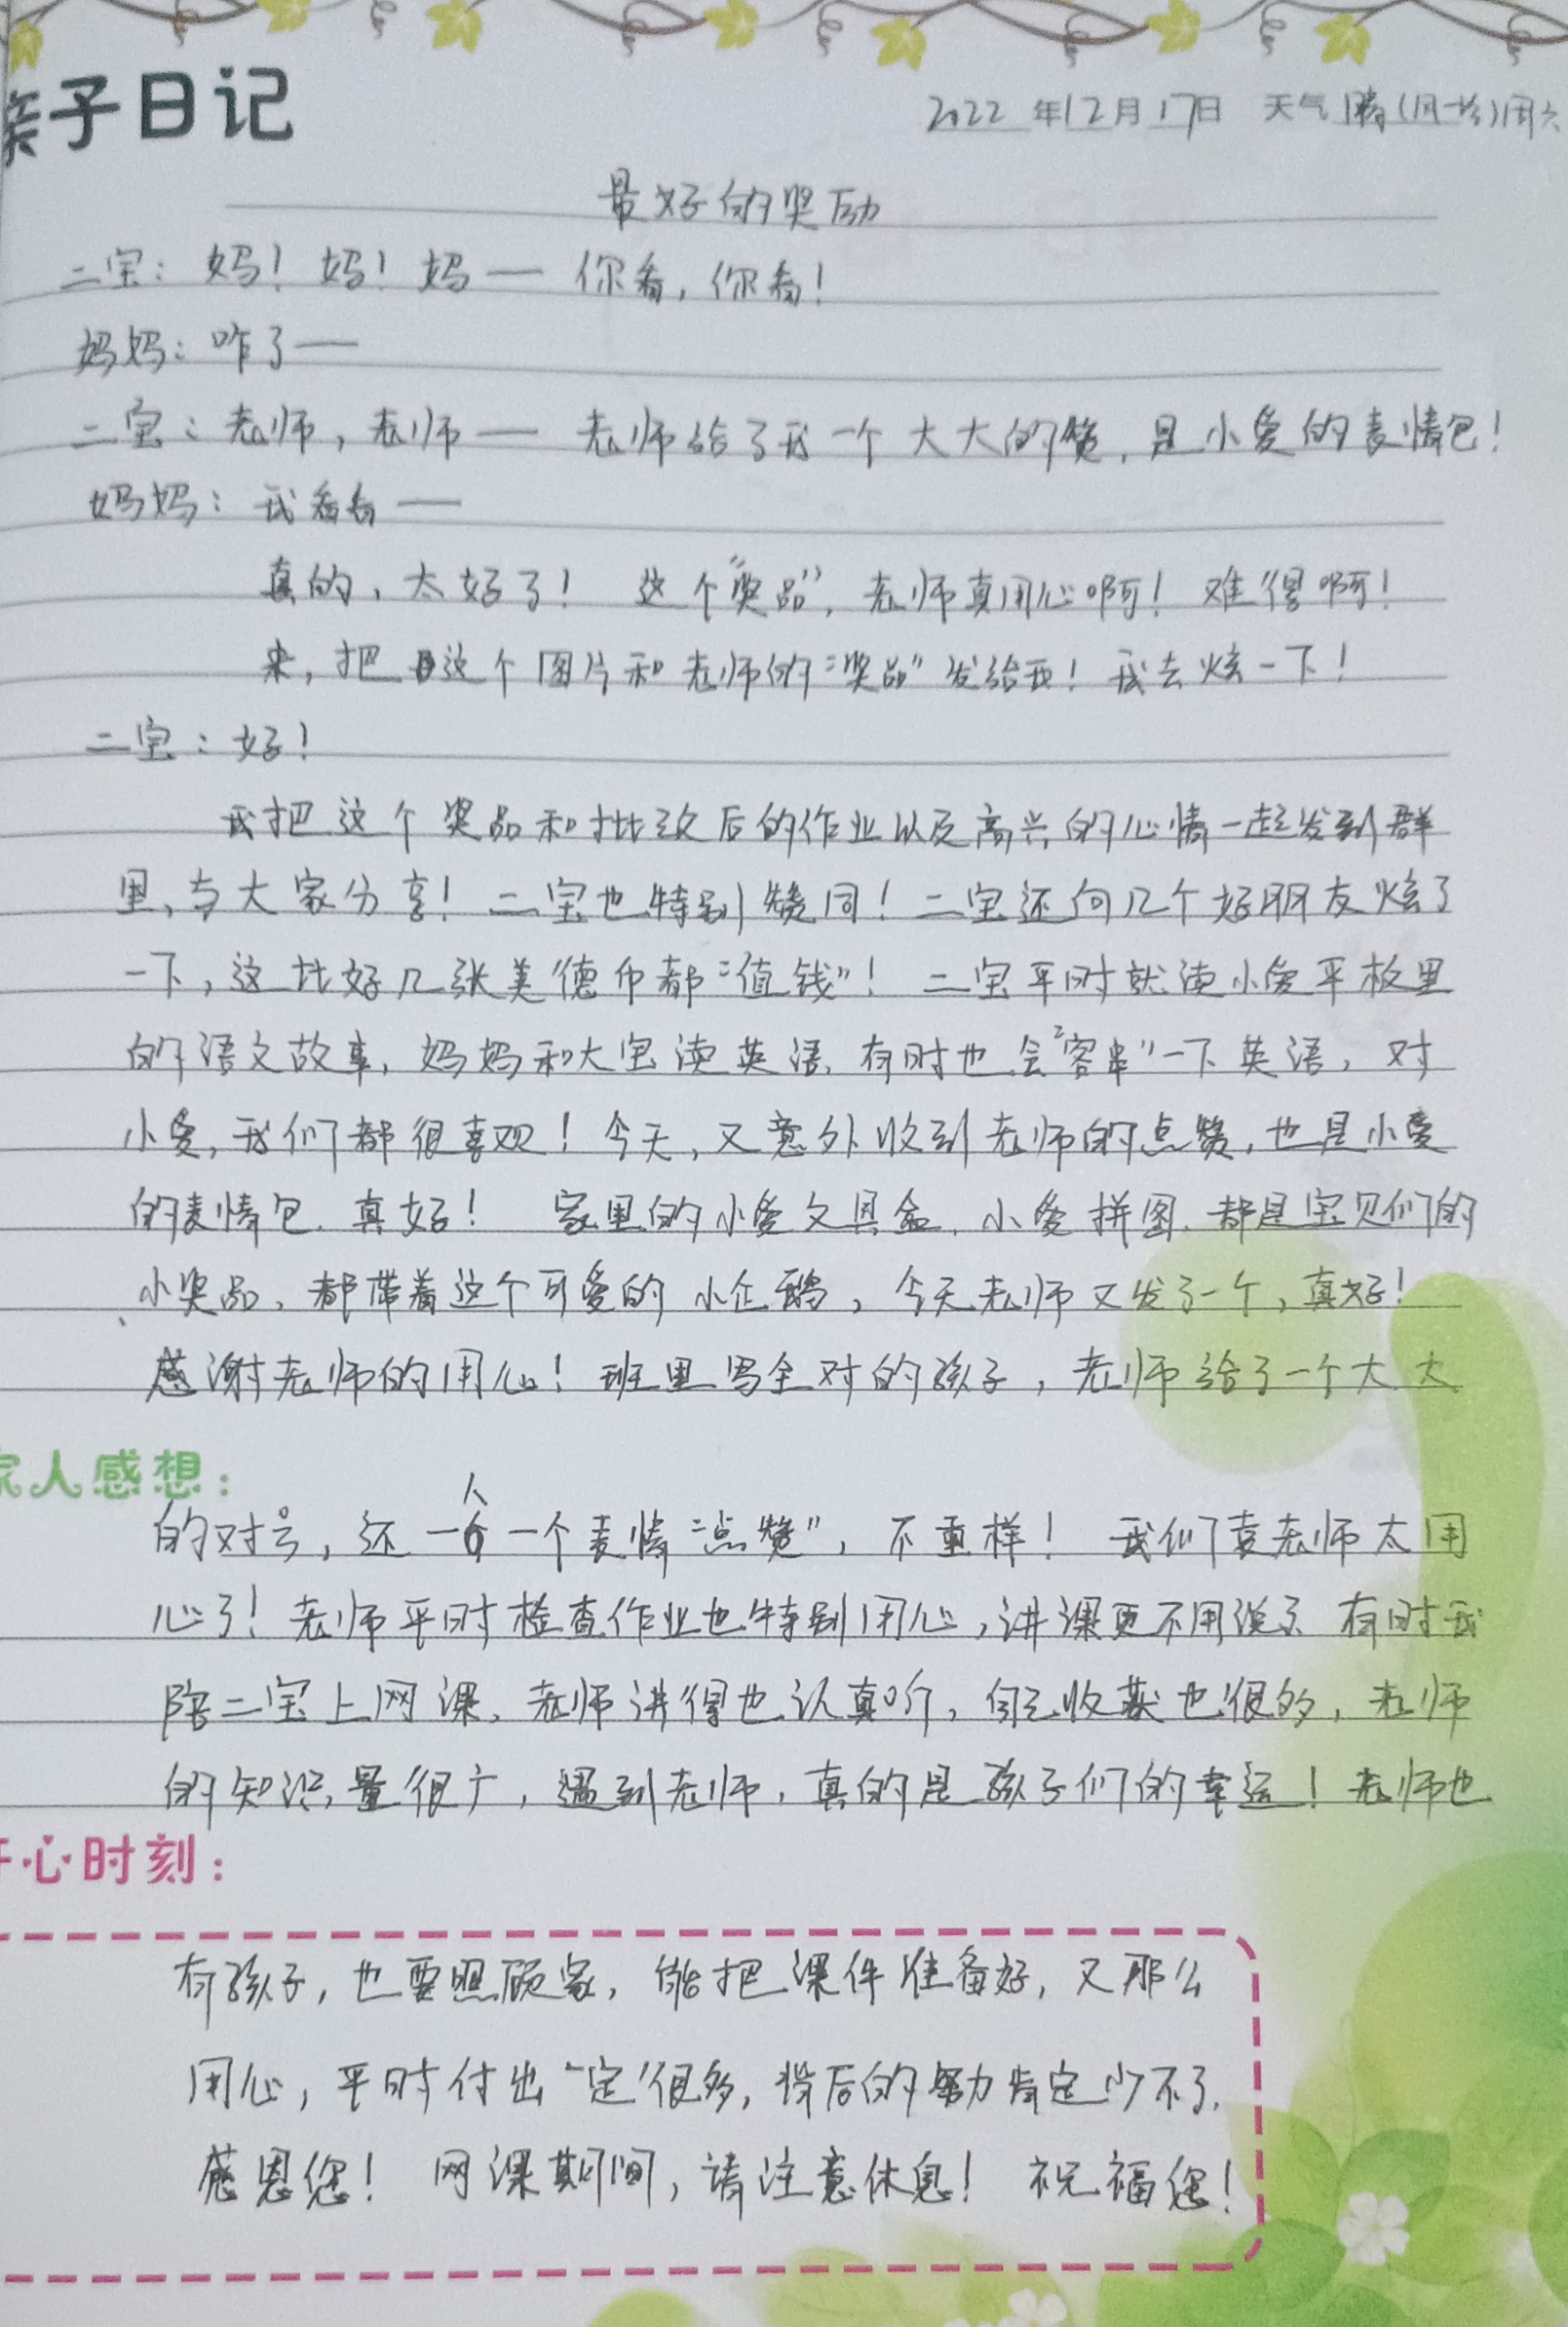 亲子日记
2022年12月17日 天气晴(风一级)周六
最好的奖励
二宝：妈！妈！妈——你看，你看！
妈妈：咋了——
二宝：老师，老师——老师给了我一个大大的赞，是小爱的表情包！
妈妈：我看看——
真的，太好了！这个“奖品”，老师真用心啊！难得啊！
来，把这个图片和老师的“奖品”发给我！我去炫一下！
二宝：好！
我把这个奖品和批改后的作业以及高兴的心情一起发到群
里，与大家分享！二宝也特别赞同！二宝还向几个好朋友炫了
一下，这比好几张美德币都“值钱”！二宝平时就读小爱平板里
的语文故事，妈妈和大宝读英语，有时也会“客串”一下英语，对
小爱，我们都很喜观！今天，又意外收到老师的点赞，也是小爱
的表情包，真好！家里的小爱文具盒，小爱拼图，都是宝贝们的
小奖品，都带着这个可爱的小企鹅，今天老师又发了一个，真好！
感谢老师的用心！班里写全对的孩子，老师给了一个大大
家人感想：
的对号，还一人一个表情“点赞”，不重样！我们袁老师太用
心了！老师平时检查作业也特别用心，讲课更不用说了 有时我
陪二宝上网课，老师讲得也认真听，自己收获也很多，老师
的知识量很广，遇到老师，真的是孩子们的幸运！老师也
开心时刻：
有孩子，也要照顾家，能把课件准备好，又那么
用心，平时付出一定很多，背后的努力肯定少不了，
感恩您！网课期间，请注意休息！祝福您！